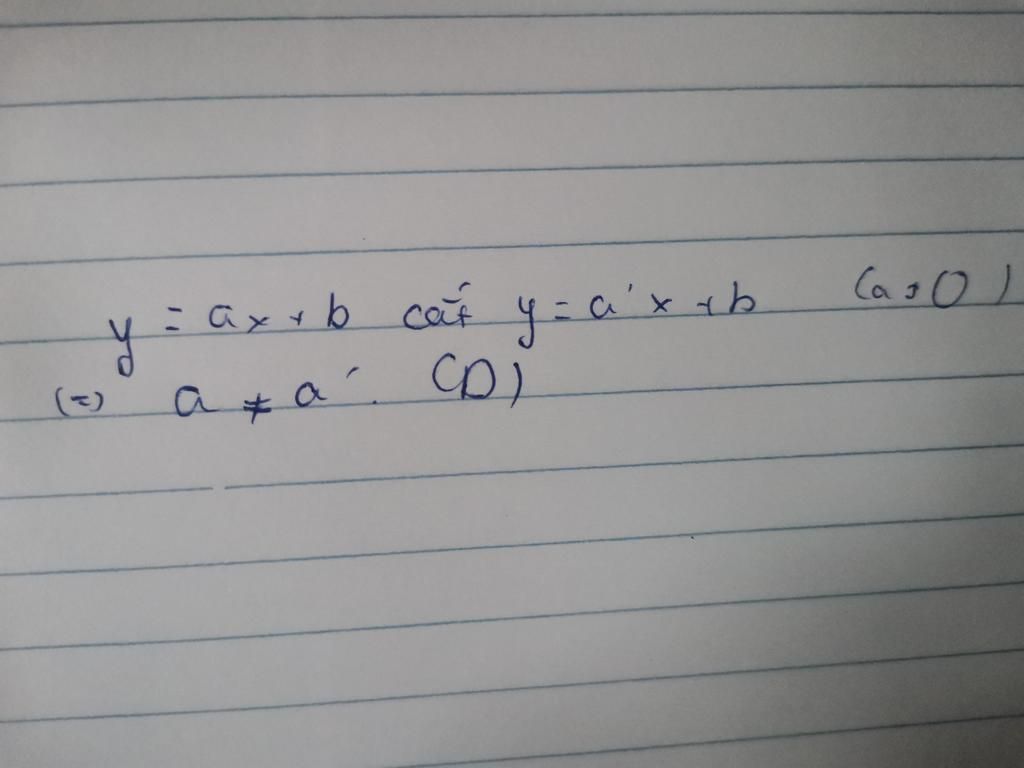 y = ax + b cắt y = a'x + b (a, 0)
(=) a ≠ a'. (D)